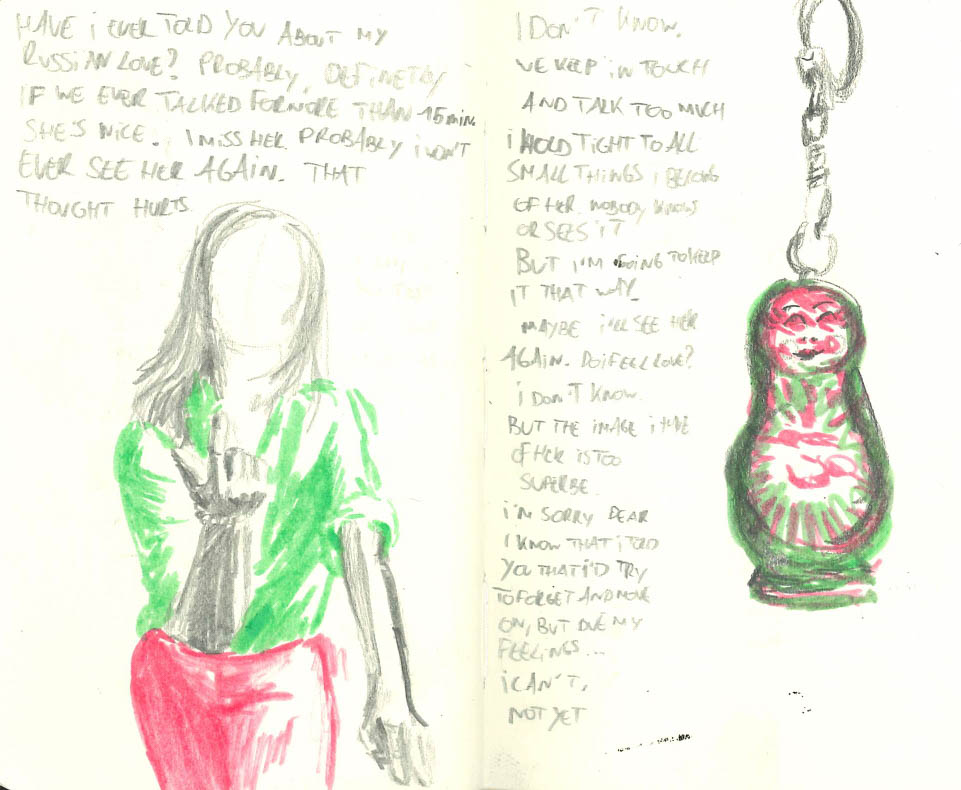 HAVE i EVER TOLD YOU ABOUT MY
RUSSIAN LOVE? PROBABLY, DEFINETLY
IF WE EVER TALKED FOR MORE THAN 15 min.
SHE'S NICE. I MISS HER. PROBABLY i WON'T
EVER SEE HER AGAIN. THAT
THOUGHT HURTS.
I DON'T KNOW.
WE KEEP IN TOUCH
AND TALK TOO MUCH
i HOLD TIGHT TO ALL
SMALL THINGS i BELONG
OF HER. NOBODY KNOWS
OR SEES IT
BUT i'M GOING TO KEEP
IT THAT WAY.
MAYBE i'LL SEE HER
AGAIN. DO i FEEL LOVE?
i DON'T KNOW.
BUT THE IMAGE i HAVE
OF HER IS TOO
SUPERBE.
i'M SORRY DEAR
I KNOW THAT i TOLD
YOU THAT i'D TRY
TO FORGET AND MOVE
ON, BUT MY
FEELINGS...
i CAN'T,
NOT YET